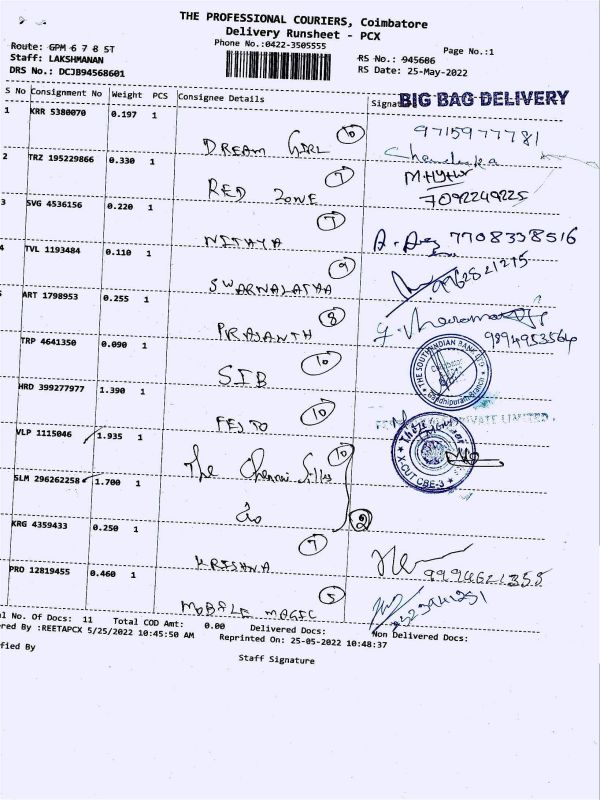 THE PROFESSIONAL COURIERS, Coimbatore
Delivery Runsheet - PCX
Phone No.:0422-3505555
Page No.:1
Route: GPM 6 7 8 ST
Staff: LAKSHMANAN
DRS No.: DCJB94568601
RS No.: 945686
RS Date: 25-May-2022
S No Consignment No Weight PCS Consignee Details Signat
BIG BAG DELIVERY
1 KRR 5380070 0.197 1
DREAM GIRL 10
9715977781
2 TRZ 195229866 0.330 1
RED ZONE 7
7092249225
3 SVG 4536156 0.220 1
NITHYA 7
7708338516
4 TVL 1193484 0.110 1
SWARNALATHA 9
ART 1798953 0.255 1
PRASANTH 8
9894953564
TRP 4641350 0.090 1
SIB 10
THE SOUTH INDIAN BANK LTD
Gandhipuram Branch
HRD 399277977 1.390 1
FESTO 10
PRIVATE LIMITED
VLP 1115046 1.935 1
The Chennai Silks 10
X-CUT CBE-3
SLM 296262258 1.700 1
do 2
KRG 4359433 0.250 1
KRISHNA 7
9994621355
PRO 12819455 0.460 1
MOBILE MAGIC 5
l No. Of Docs: 11 Total COD Amt: 0.00 Delivered Docs: Non Delivered Docs:
red By :REETAPCX 5/25/2022 10:45:50 AM Reprinted On: 25-05-2022 10:48:37
fied By
Staff Signature